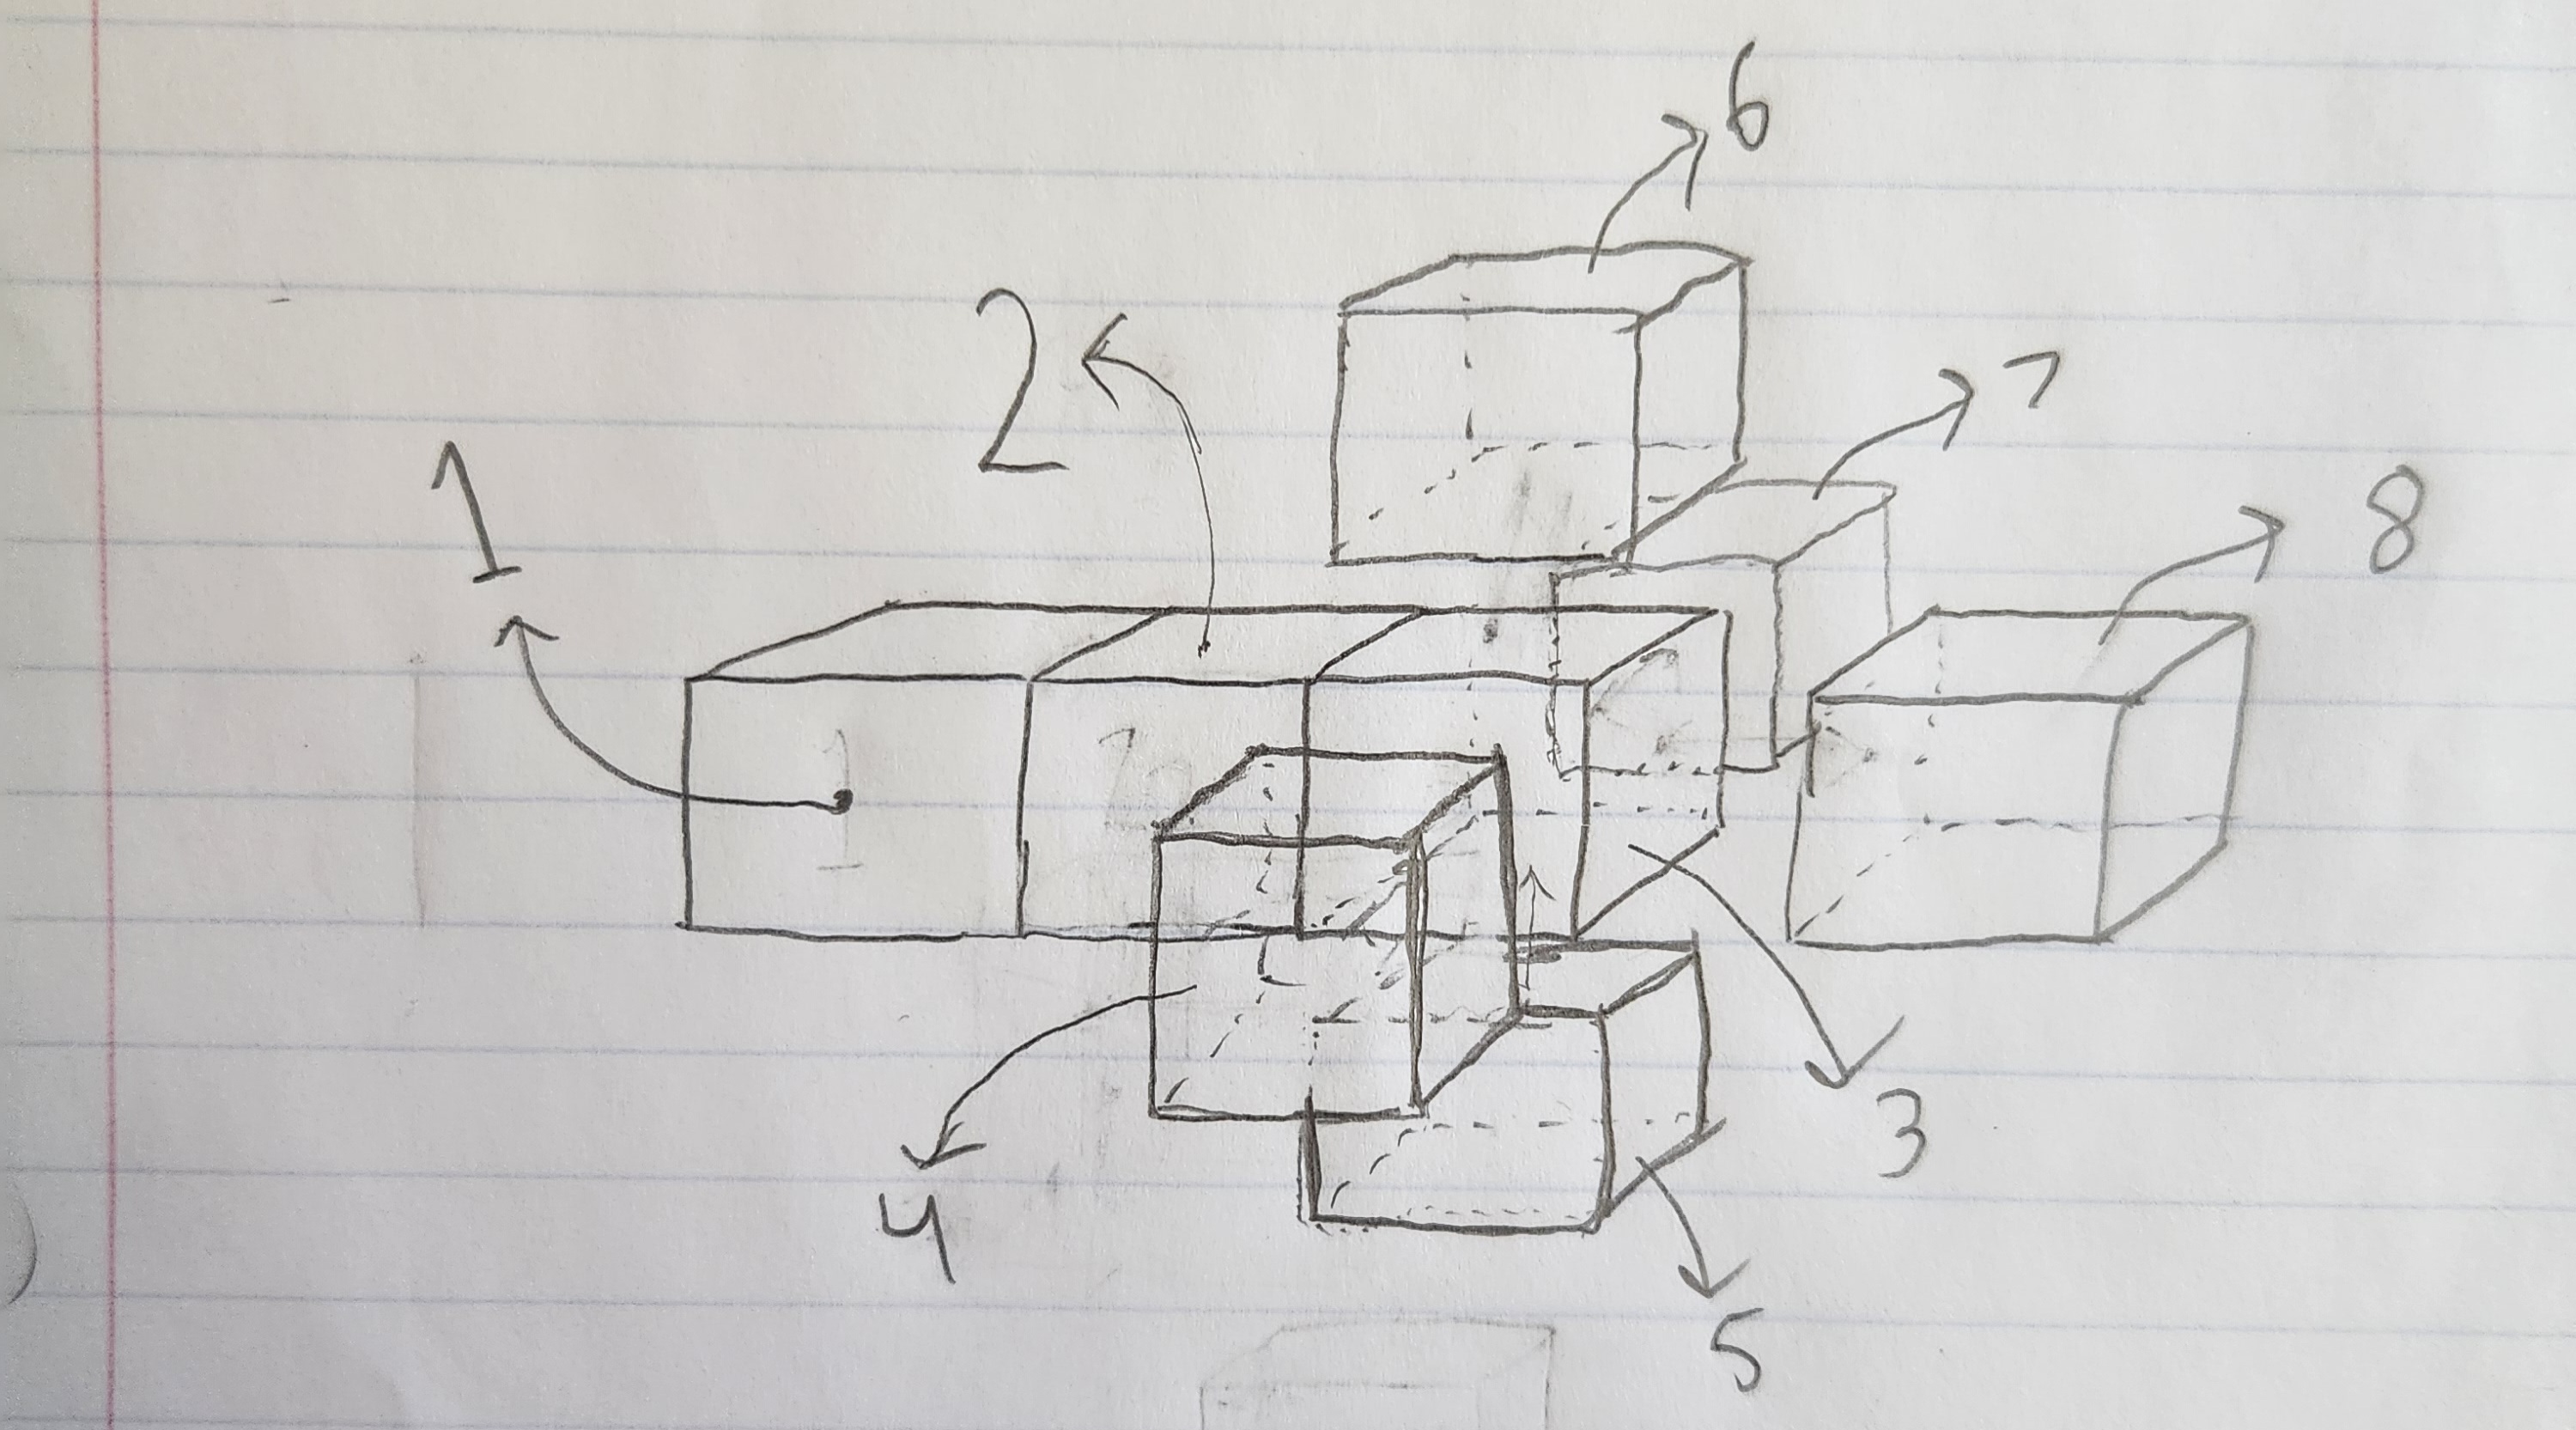 6
2
7
1
8
1
2
3
4
5